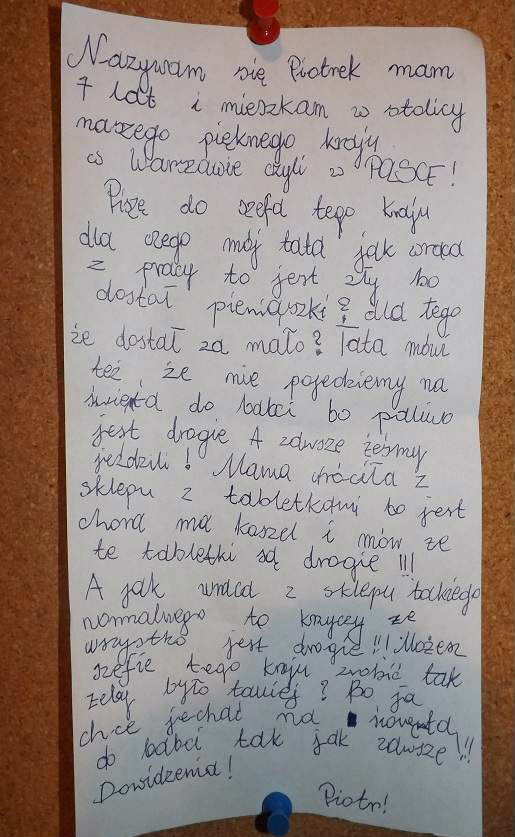 Nazywam się Piotrek mam
7 lat i mieszkam w stolicy
naszego pięknego kraju
w Warszawie czyli w POLSCE!
Piszę do szefa tego kraju
dla czego mój tata jak wraca
z pracy to jest zły bo
dostał pieniąszki? dla tego
że dostał za mało? Tata mówi
też że nie pojedziemy na
święta do babci bo paliwo
jest drogie A zawsze żeśmy
jeździli! Mama wróciła z
sklepu z tabletkami bo jest
chora ma kaszel i mów że
te tabletki są drogie!!!
A jak wraca z sklepu takiego
normalnego to krzyczy że
wszystko jest drogie!!! Możesz
szefie tego kraju zrobić tak
żeby było taniej? Bo ja
chce jechać na święta
do babci tak jak zawsze!!!
Dowidzenia!
Piotr!